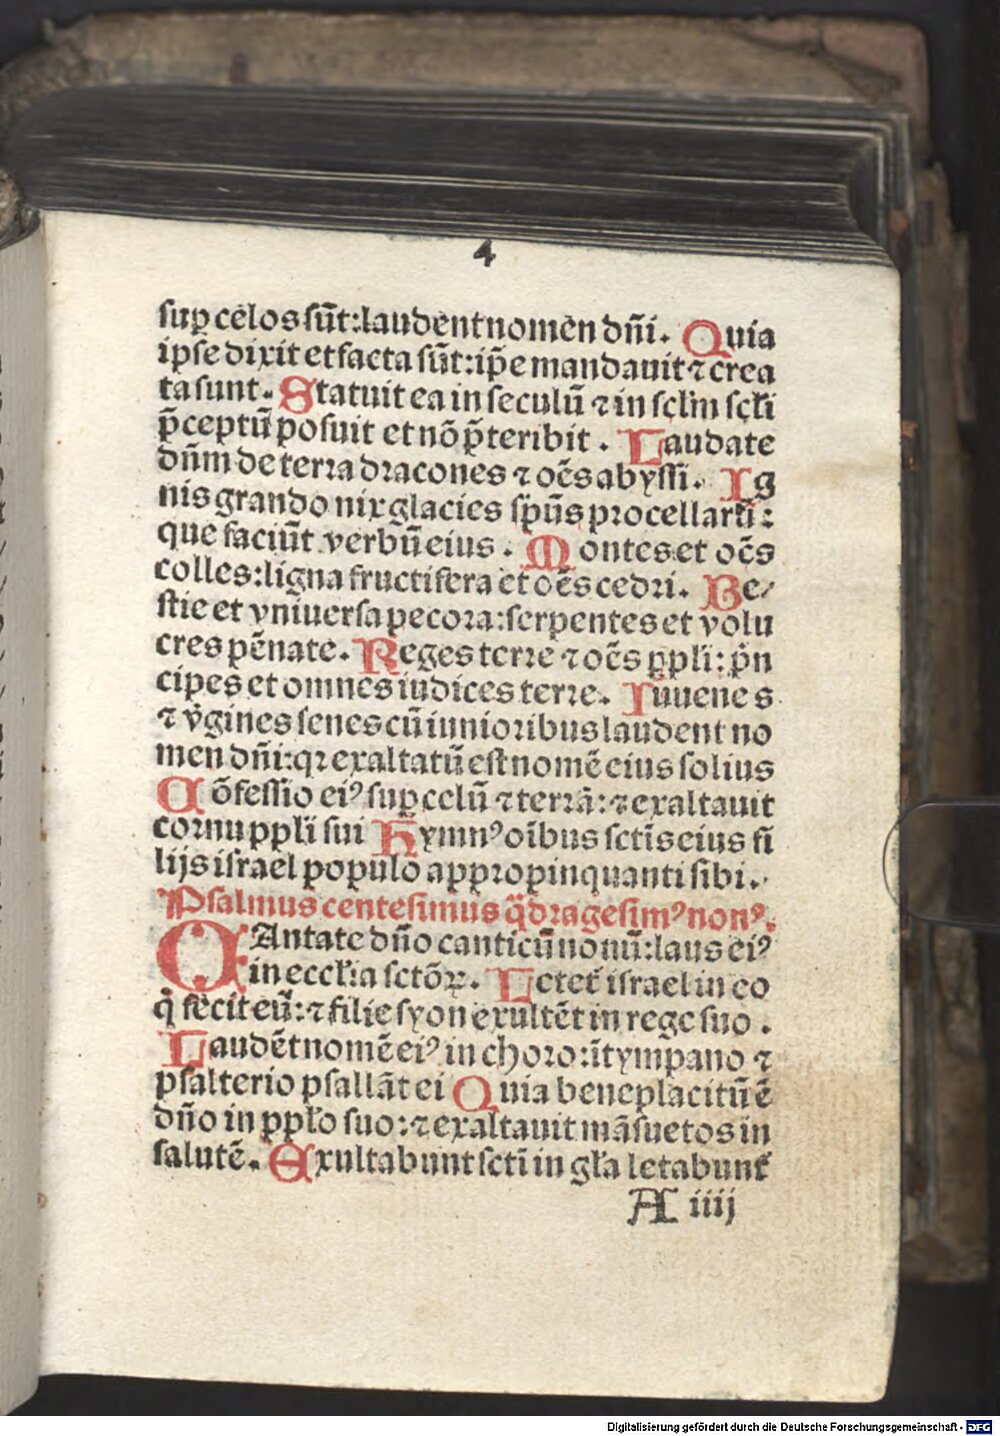 4
sup̱ celos sūt:laudent nomen dn̄i. Quia
ipse dixit et facta sūt:ip̄e mandauit ⁊ crea
ta sunt. Statuit ea in seculū ⁊ in sclm̄ scl̄i
p̄ceptū posuit et nō p̄teribit. Laudate
dn̄m de terra dracones ⁊ oēs abyssi. Ig
nis grando nix glacies sp̄ūs procellarū:
que faciūt verbū eius. Montes et oēs
colles:ligna fructifera et oēs cedri. Be/
stie et vniuersa pecora:serpentes et volu
cres pēnate. Reges terre ⁊ oēs pp̄li:p̄n
cipes et omnes iudices terre. Iuuenes
⁊ v̄gines senes cū iunioribus laudent no
men dn̄i:qꝛ exaltatū est nomē eius solius
Cōfessio eiꝰ sup̱ celū ⁊ terrā:⁊ exaltauit
cornu pp̄li sui Hymnꝰ oībus sct̄is eius fi
lijs israel populo appropinquanti sibi.
Psalmus centesimus q̄dragesimꝰ nonꝰ.
CAntate dn̄o canticū nouū:laus eiꝰ
in eccl̄ia sctōꝝ. Letet̄ israel in eo
q̇ fecit eū:⁊ filie syon exultēt in rege suo.
Laudēt nomē eiꝰ in choro:ī tympano ⁊
psalterio psallāt ei Quia beneplacitū ē
dn̄o in pp̄lo suo:⁊ exaltauit māsuetos in
salutē. Exultabunt sct̄i in gl̄a letabunt̄
A iiij
Digitalisierung gefördert durch die Deutsche Forschungsgemeinschaft - DFG